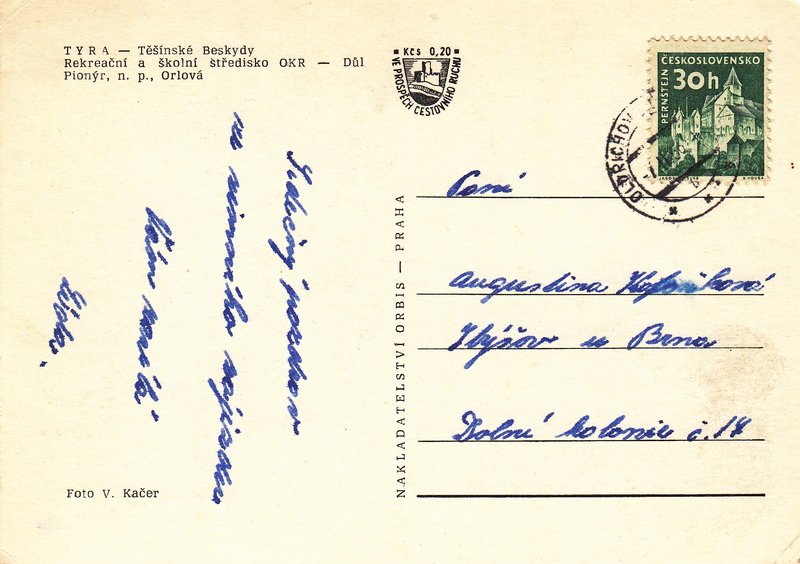 TYRA — Těšínské Beskydy
Rekreační a školní středisko OKR — Důl
Pionýr, n. p., Orlová
Kčs 0,20
VE PROSPĚCH CESTOVNÍHO RUCHU
ČESKOSLOVENSKO
30h
PERNŠTEJN
OLDŘICHOV
Srdečný pozdrav
Vám posílá
NAKLADATELSTVÍ ORBIS — PRAHA
Paní
Augustina
Zbýšov u Brna
Dolní kolonie č. 17
Foto V. Kačer